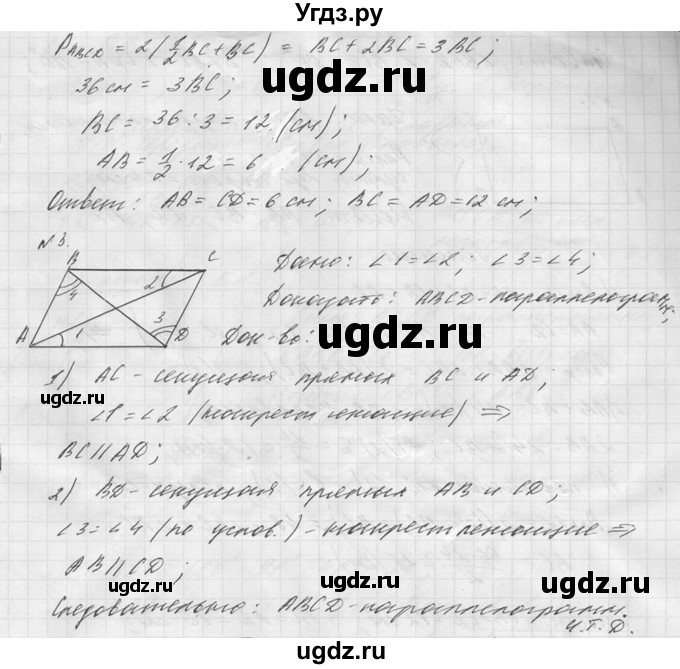 Угдз.ру
P_ABCD = 2(1/2 BC + BC) = BC + 2BC = 3BC;
ugdz.ru
36 см = 3BC;
BC = 36 : 3 = 12 (см);
AB = 1/2 · 12 = 6 (см);
ugdz.ru
Ответ: AB = CD = 6 см; BC = AD = 12 см;
№3.
B C
4 2
A 1 3 D
Дано: ∠1 = ∠2; ∠3 = ∠4;
Доказать: ABCD - параллелограмм;
ugdz.ru
Док-во:
1) AC - секущая прямых BC и AD;
ugdz.ru
∠1 = ∠2 (накрест лежащие) ⇒
ugdz.ru
BC || AD;
2) BD - секущая прямых AB и CD;
ugdz.ru
∠3 = ∠4 (по услов.) - накрест лежащие ⇒
AB || CD;
ugdz.ru
ugdz.ru
Следовательно: ABCD - параллелограмм.
ч.т.д.
ugdz.ru